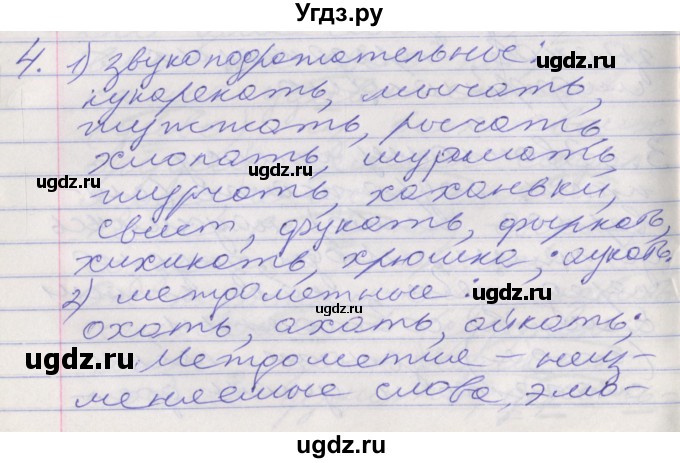 Угдз.ру
4. 1) звукоподражательные:
кукарекать, мычать,
жужжать, рычать,
хлопать, шуршать,
журчать, хаханьки,
свист, фукать, фыркать,
хихикать, хрюшка; аукать.
2) междометные:
охать, ахать, айкать;
Междометия – неиз-
меняемые слова, эмо-
ugdz.ru
ugdz.ru
ugdz.ru
ugdz.ru
ugdz.ru
ugdz.ru
ugdz.ru
ugdz.ru
ugdz.ru
ugdz.ru
ugdz.ru